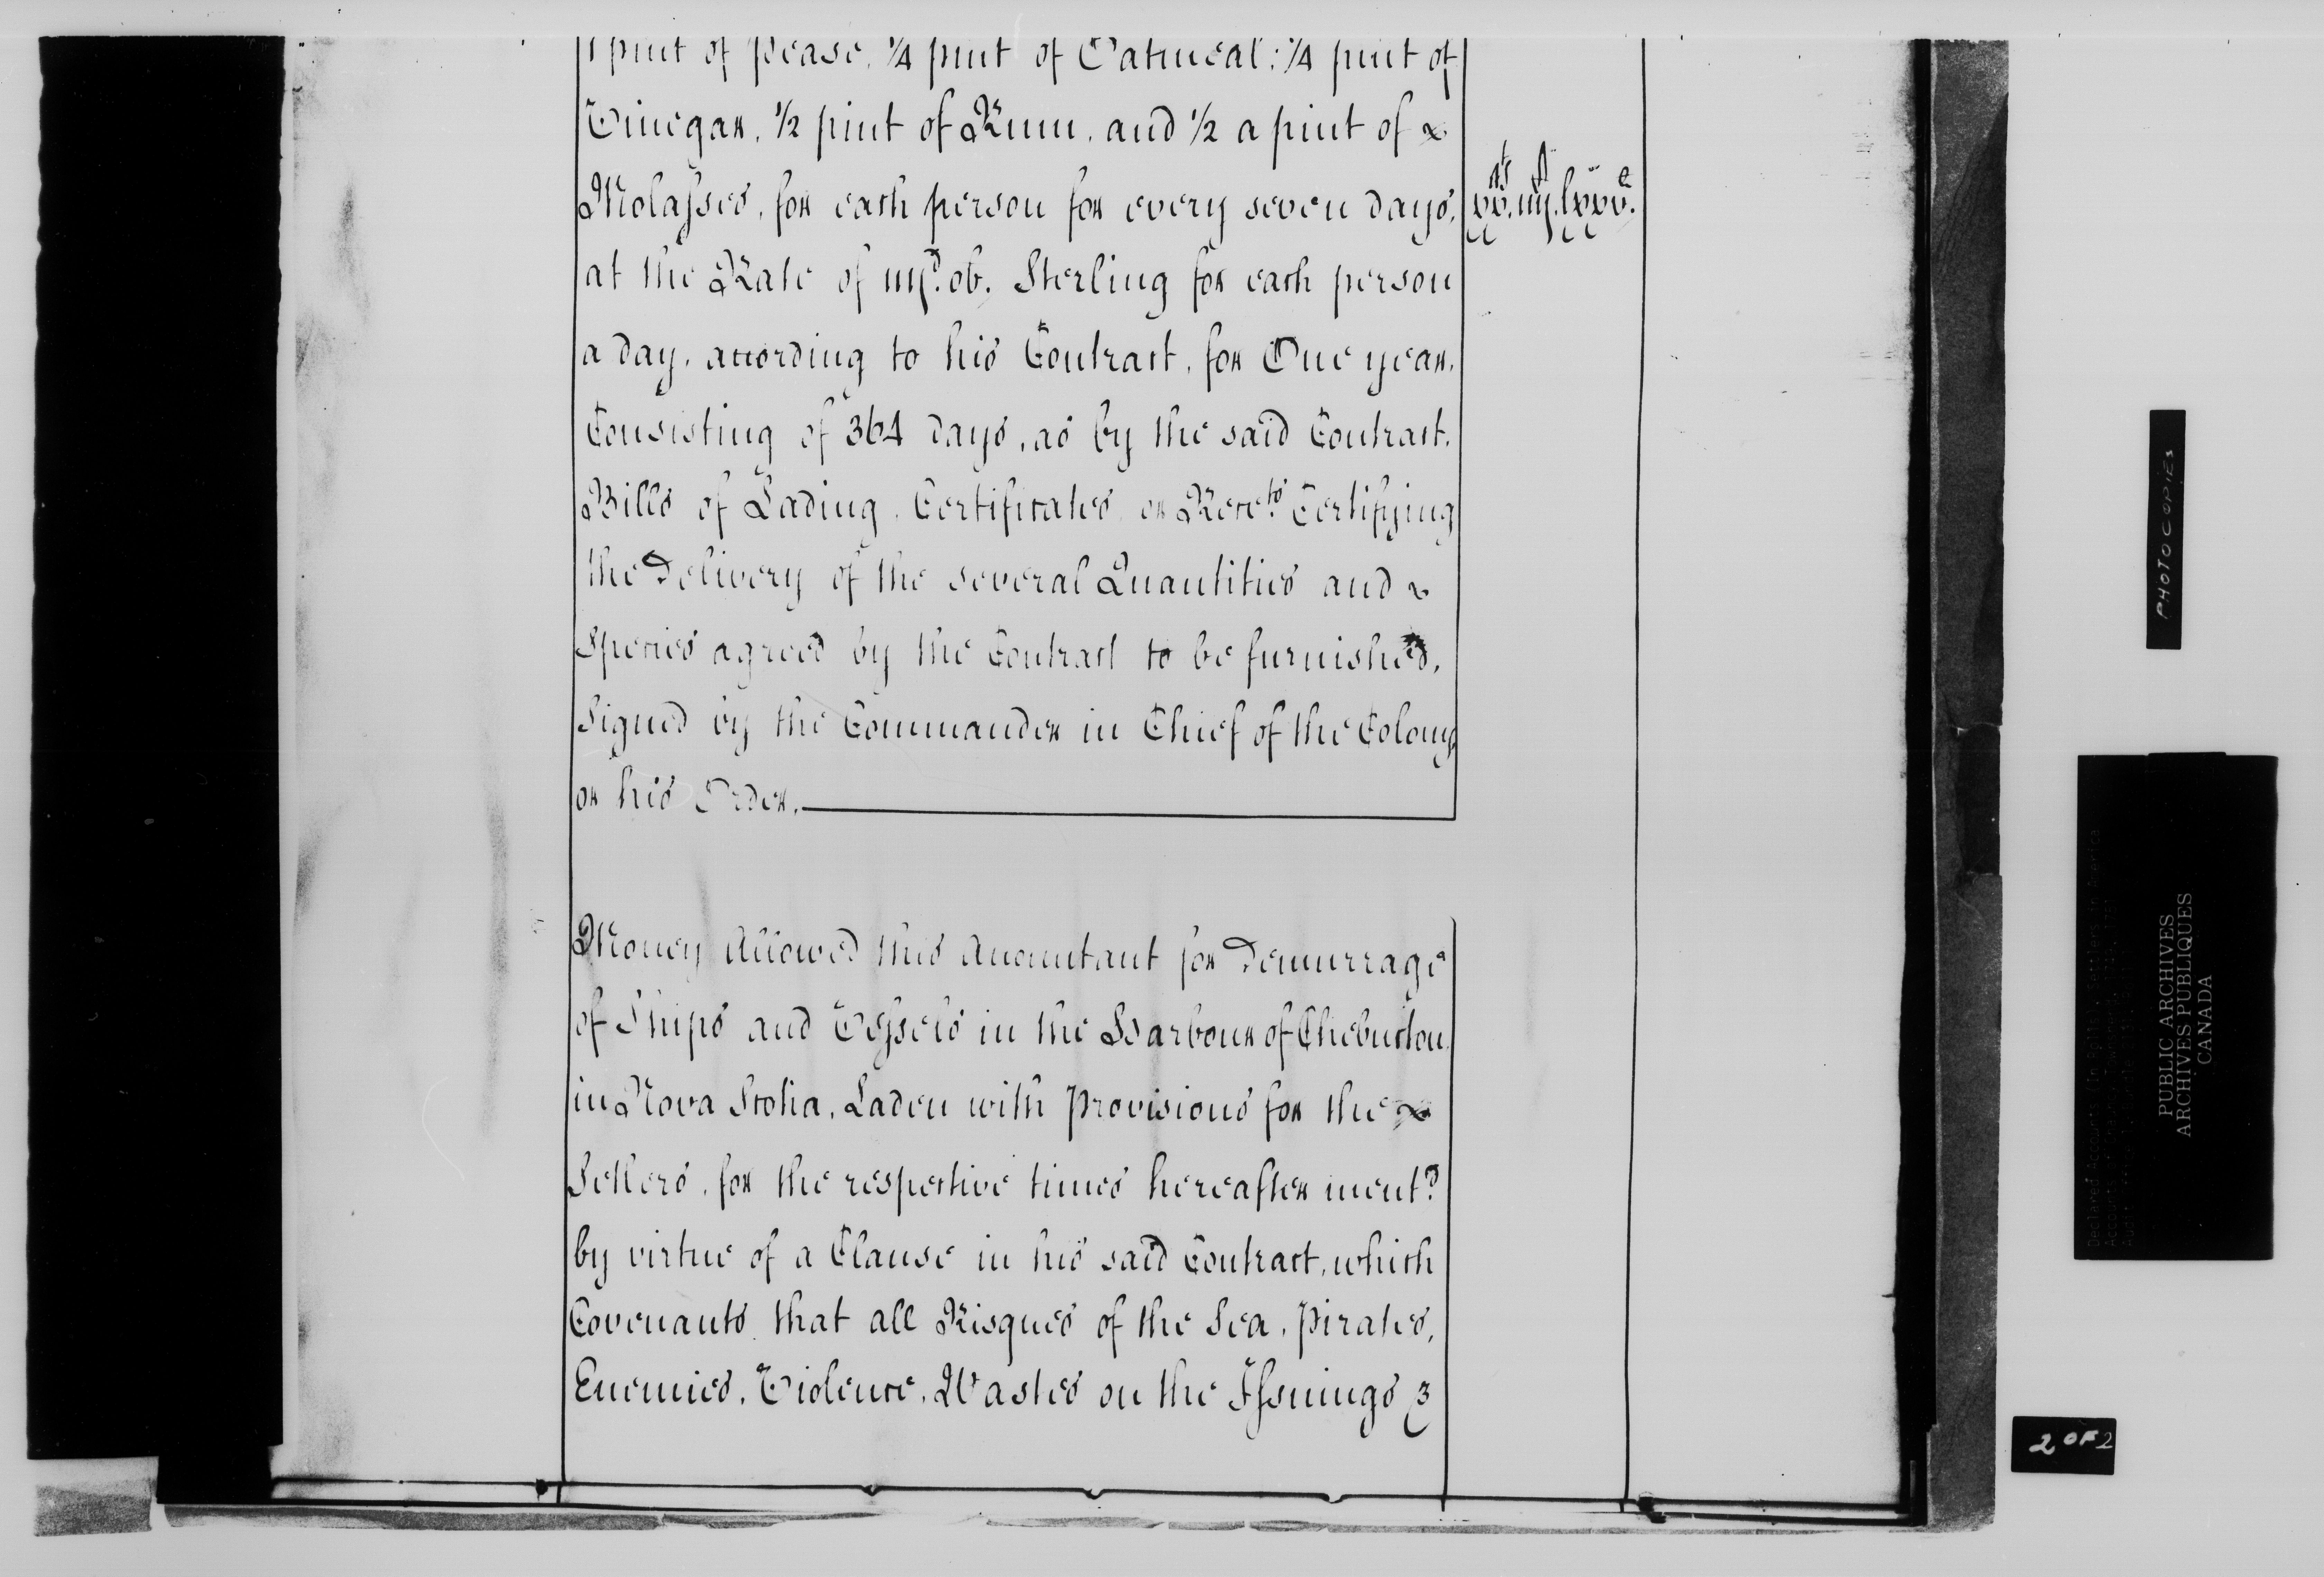 1 pint of pease, 1/4 pint of Oatmeal; 1/4 pint of
Vinegar, 1/2 pint of Rum, and 1/2 a pint of
Molasses, for each person for every seven days,
at the Rate of iijd. ob. Sterling for each person
a day, according to his Contract, for One year,
Consisting of 364 days, as by the said Contract,
Bills of Lading, Certificates, or Recets. Certifying
the Delivery of the several Quantities and
Species agreed by the Contract to be furnished,
Signed by the Commander in Chief of the Colony
or his Order.
Money Allowed this Accomtant for Demurrage
of Ships and Vessels in the Harbour of Chebucton
in Nova Scotia, Laden with Provisions for the
Settlers, for the respective times hereafter mentd.
by virtue of a Clause in his said Contract, which
Covenants that all Risques of the Sea, Pirates,
Enemies, Violence, Wastes on the Issuings
PHOTOCOPIES
PUBLIC ARCHIVES
ARCHIVES PUBLIQUES
CANADA
2 OF 2